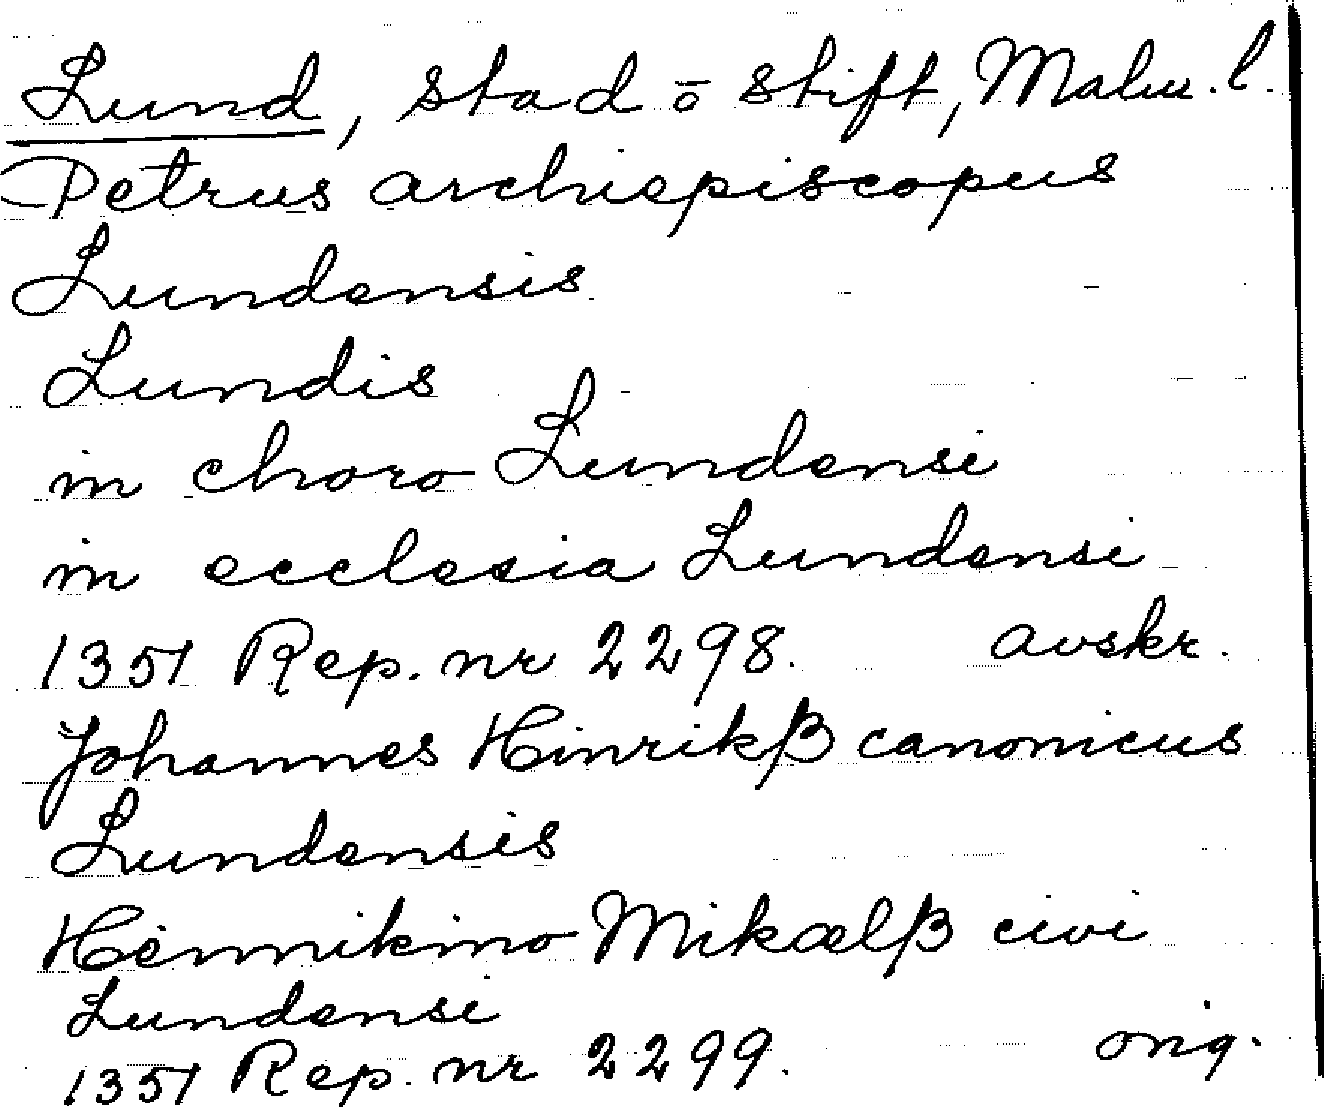 Lund, stad o stift, Malm. l.
Petrus archiepiscopus
Lundensis
Lundis
in choro Lundensi
in ecclesia Lundensi
1351 Rep. nr 2298. avskr.
Johannes Hinrikß canonicus
Lundensis
Hennikino Mikælß civi
Lundensi
1351 Rep. nr 2299. orig.